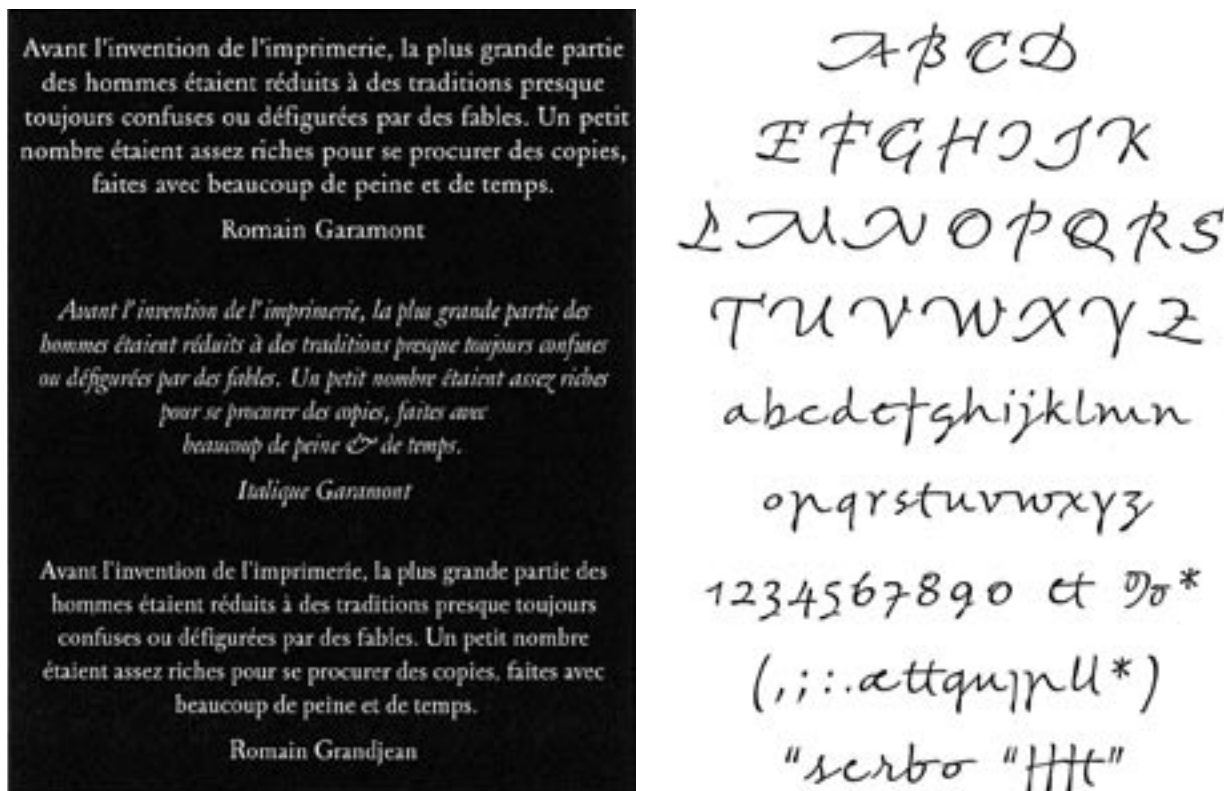 Avant l'invention de l'imprimerie, la plus grande partie
des hommes étaient réduits à des traditions presque
toujours confuses ou défigurées par des fables. Un petit
nombre étaient assez riches pour se procurer des copies,
faites avec beaucoup de peine et de temps.
Romain Garamont
Avant l'invention de l'imprimerie, la plus grande partie des
hommes étaient réduits à des traditions presque toujours confuses
ou défigurées par des fables. Un petit nombre étaient assez riches
pour se procurer des copies, faites avec
beaucoup de peine & de temps.
Italique Garamont
Avant l'invention de l'imprimerie, la plus grande partie des
hommes étaient réduits à des traditions presque toujours
confuses ou défigurées par des fables. Un petit nombre
étaient assez riches pour se procurer des copies, faites avec
beaucoup de peine et de temps.
Romain Grandjean
A B C D
E F G H I J K
L M N O P Q R S
T U V W X Y Z
abcdefghijklmn
opqrstuvwxyz
1234567890 et *
(,;:.ættqu ll*)
"serbo